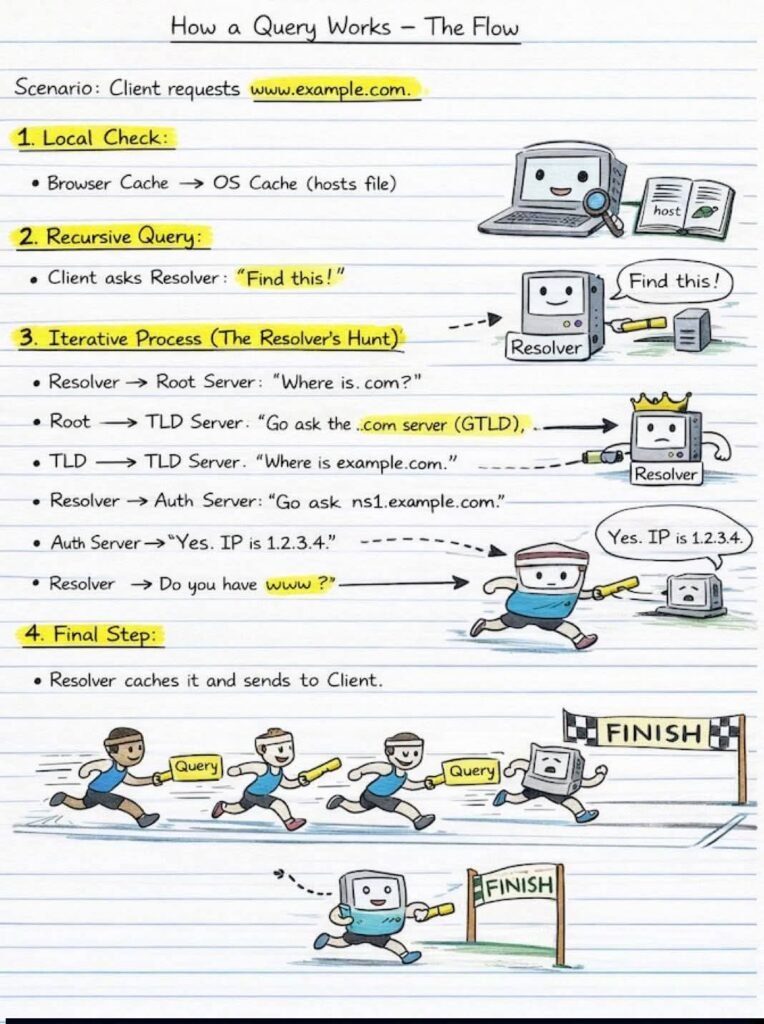 How a Query Works – The Flow
Scenario: Client requests www.example.com.
1. Local Check:
• Browser Cache → OS Cache (hosts file)
host
2. Recursive Query:
• Client asks Resolver: "Find this!"
Find this!
Resolver
3. Iterative Process (The Resolver's Hunt)
• Resolver → Root Server: "Where is. com?"
• Root → TLD Server. "Go ask the ..com server (GTLD), .
• TLD → TLD Server. "Where is example.com."
Resolver
• Resolver → Auth Server: "Go ask ns1.example.com."
• Auth Server → "Yes. IP is 1.2.3.4."
Yes. IP is 1.2.3.4.
• Resolver → Do you have www ?"
4. Final Step:
• Resolver caches it and sends to Client.
FINISH
Query
Query
FINISH